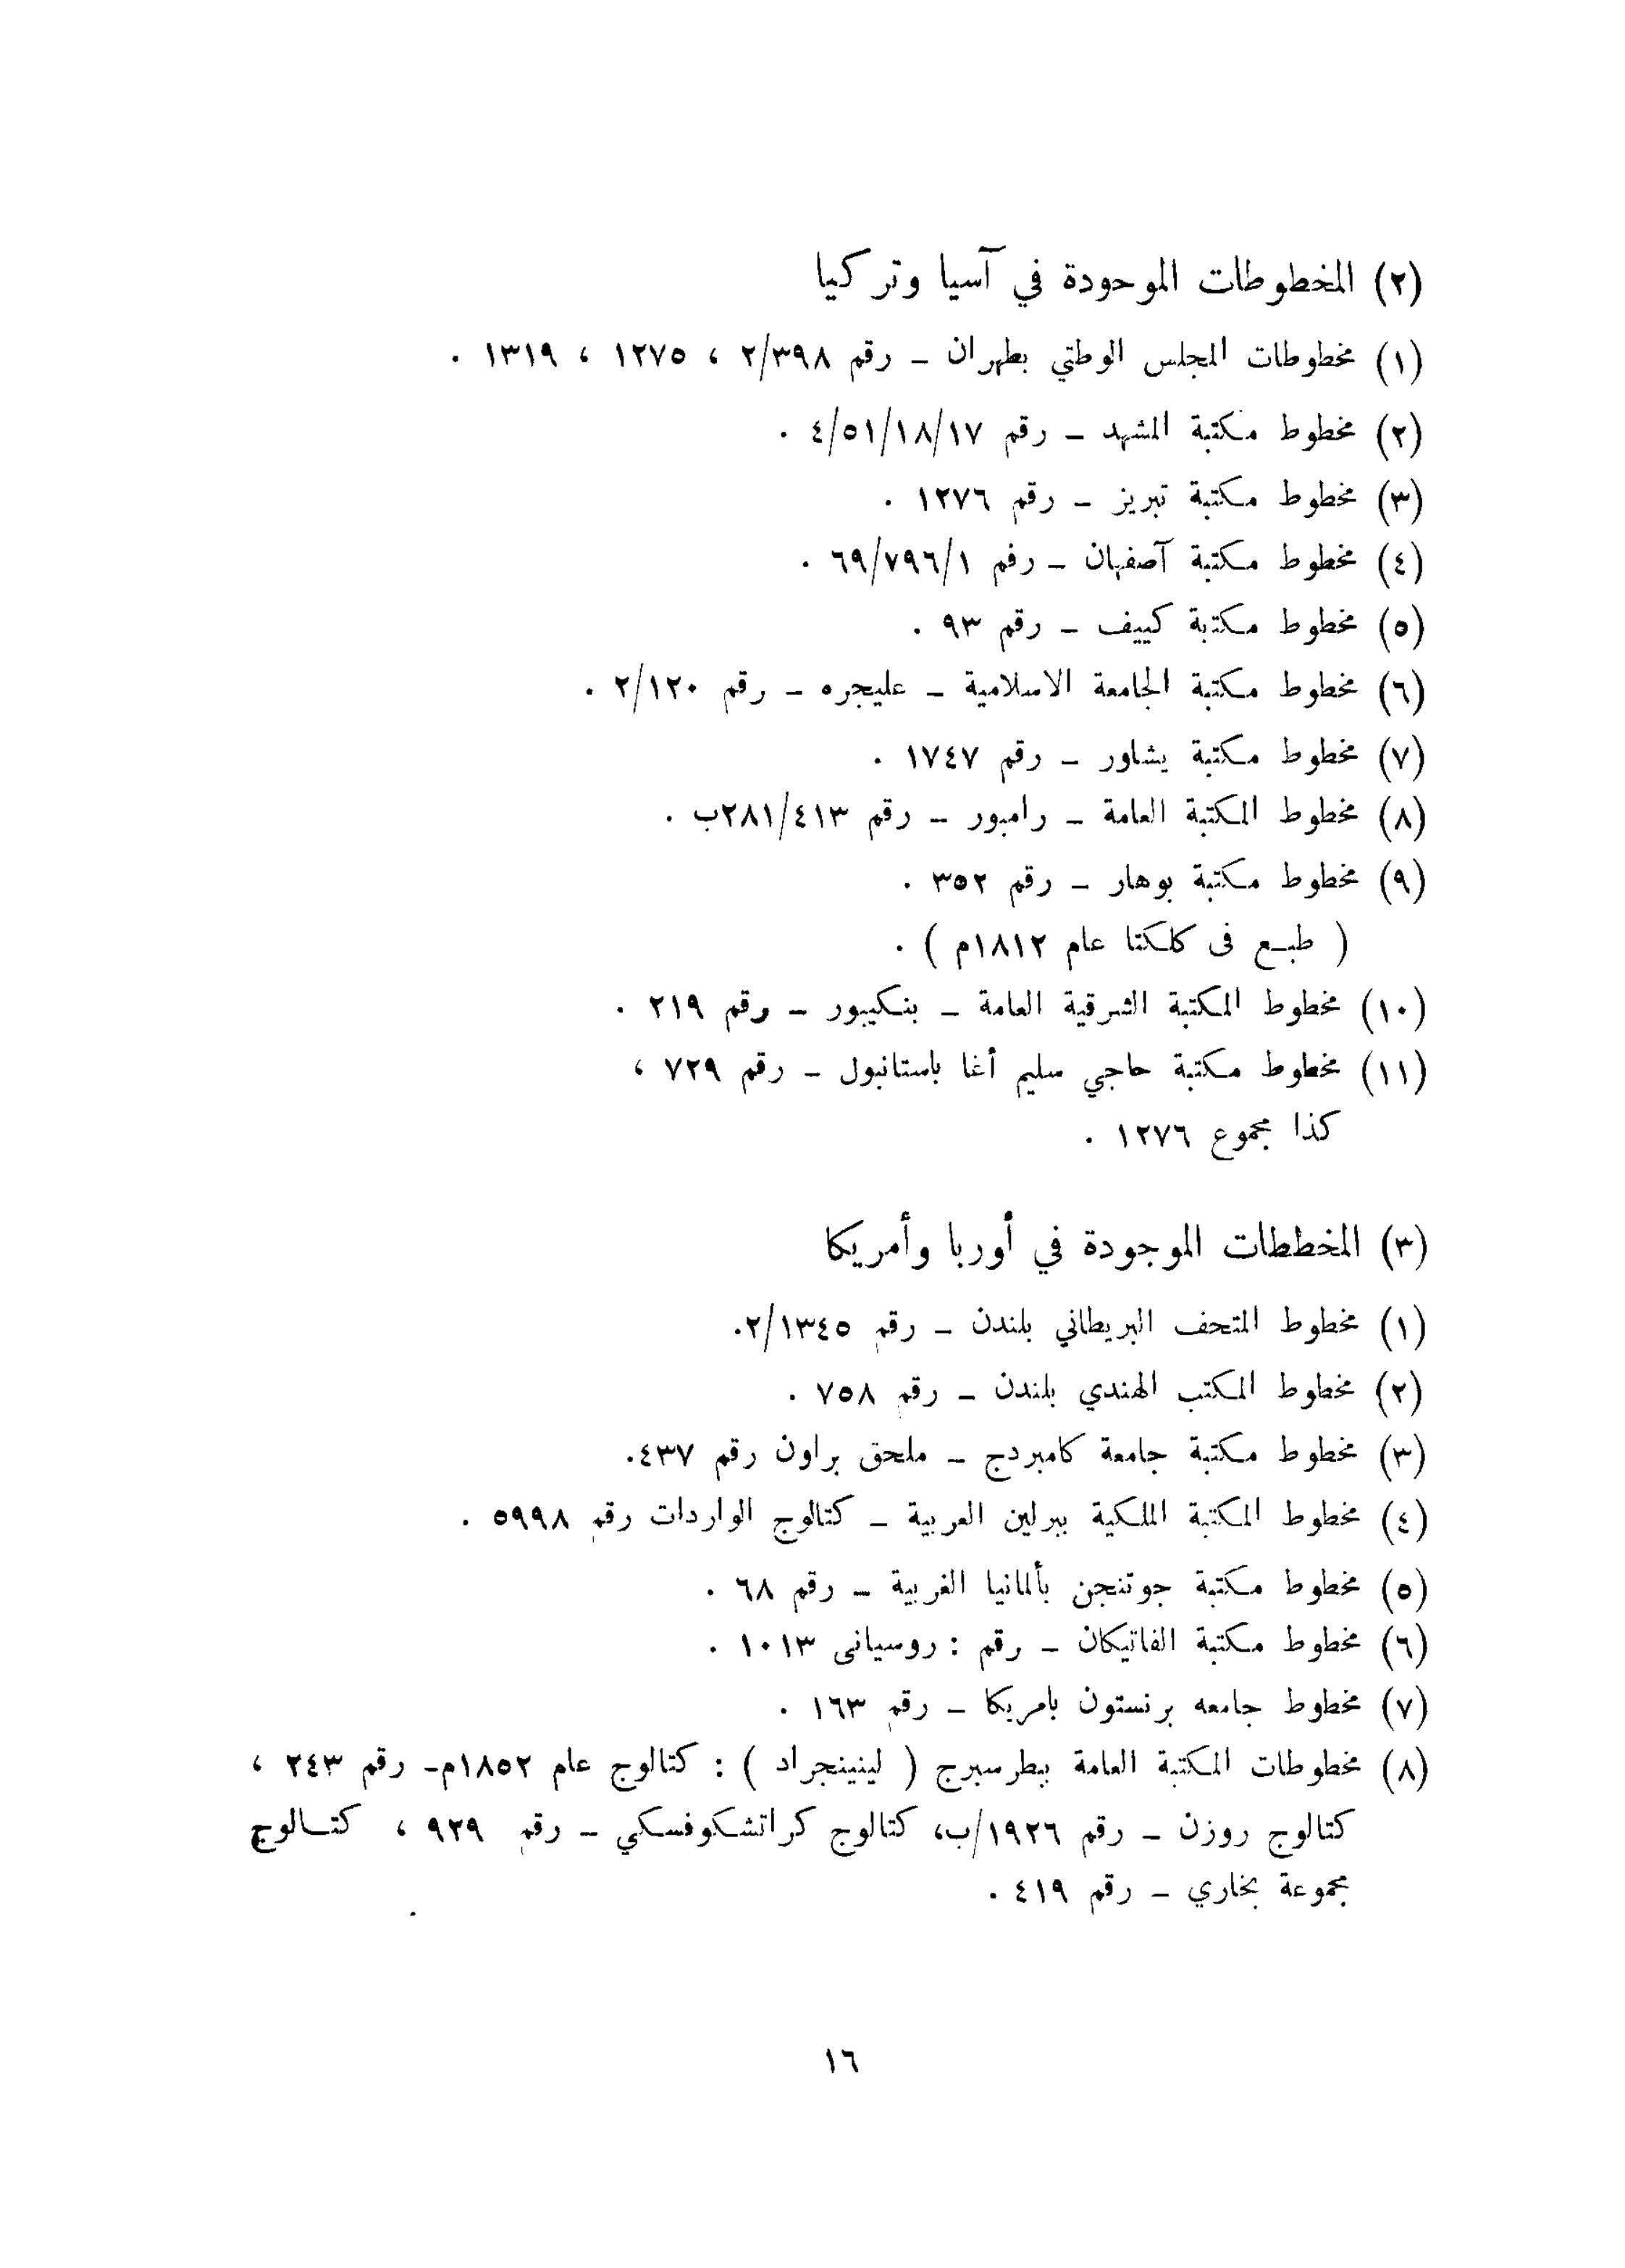 (٢) المخطوطات الموحودة في آسيا وتركيا
(١) مخطوطات المجلس الوطتي بطهران – رقم ٢/٣٩٨ ، ١٢٧٥ ، ١٣١٩ .
(٢) مخطوط مكتبة المشهد – رقم ٤/٥١/١٨/١٧ .
(٣) مخطوط مكتبة تبريز – رقم ١٢٧٦ .
(٤) مخطوط مكتبة آصفهان – رفم ٦٩/٧٩٦/١ .
(٥) مخطوط مكتبة كييف – رقم ٩٣ .
(٦) مخطوط مكتبة الجامعة الاسلامية – عليجره – رقم ٢/١٢٠ .
(٧) مخطوط مكتبة يشاور – رقم ١٧٤٧ .
(٨) مخطوط المكتبة العامة – رامبور – رقم ٢٨١/٤١٣ب .
(٩) مخطوط مكتبة بوهار – رقم ٣٥٢ .
( طبع فى كلكتا عام ١٨١٢م ) .
(١٠) مخطوط المكتبة الشرقية العامة – بنكيبور – رقم ٢١٩ .
(١١) مخطوط مكتبة حاجي سليم أغا باستانبول – رقم ٧٢٩ ،
كذا مجموع ١٢٧٦ .
(٣) المخططات الموجودة في أوربا وأمريكا
(١) مخطوط المتحف البريطاني بلندن – رقم ٢/١٣٤٥.
(٢) مخطوط المكتب الهندي بلندن – رقم ٧٥٨ .
(٣) مخطوط مكتبة جامعة كامبردج – ملحق براون رقم ٤٣٧.
(٤) مخطوط المكتبة الملكية ببرلين العربية – كتالوج الواردات رقم ٥٩٩٨ .
(٥) مخطوط مكتبة جوتنجن بألمانيا الغربية – رقم ٦٨ .
(٦) مخطوط مكتبة الفاتيكان – رقم : روسيانى ١٠١٣ .
(٧) مخطوط جامعه برنستون بامريكا – رقم ١٦٣ .
(٨) مخطوطات المكتبة العامة ببطرسبرج ( لينينجراد ) : كتالوج عام ١٨٥٢م– رقم ٢٤٣ ،
كتالوج روزن – رقم ١٩٢٦/ب، كتالوج كراتشكوفسكي – رقم ٩٢٩ ، كتالوج
مجموعة بخاري – رقم ٤١٩ .
١٦